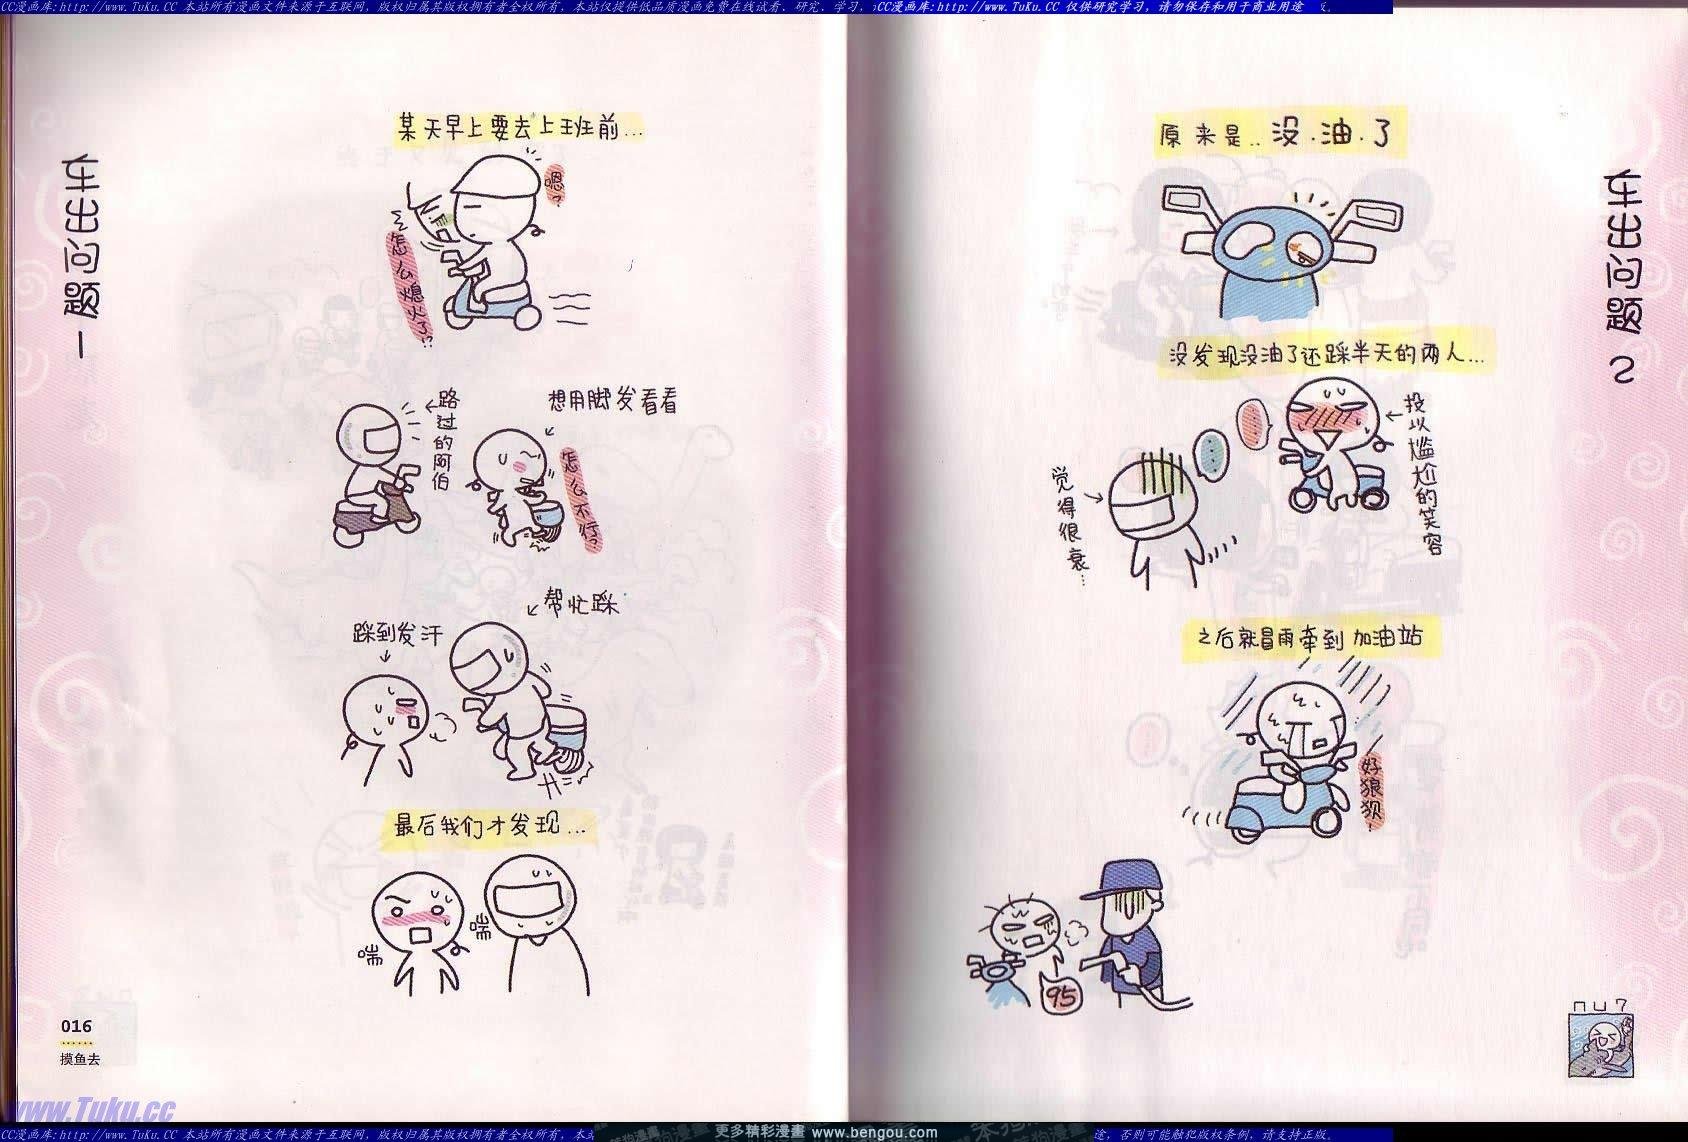 CC漫画库:http://www.TuKu.CC 本站所有漫画文件来源于互联网，版权归属其版权拥有者全权所有，本站仅提供低品质漫画免费在线试看、研究、学习，
CC漫画库:http://www.TuKu.CC 仅供研究学习，请勿保存和用于商业用途
车出问题 1
某天早上要去上班前...
嗯?
怎么熄火了!?
←路过的阿伯
想用脚发看看
怎么不行?
帮忙踩
踩到发汗
最后我们才发现...
喘
喘
016
摸鱼去
车出问题 2
原来是...没.油.了
没发现没油了还踩半天的两人...
←投以尴尬的笑容
觉得很衰...
之后就冒雨牵到加油站
好狼狈!
95
www.Tuku.cc
CC漫画库:http://www.TuKu.CC 本站所有漫画文件来源于互联网，版权归属其版权拥有者全权所有，本
更多精彩漫畫 www.bengou.com
否则可能触犯版权条例，请支持正版。